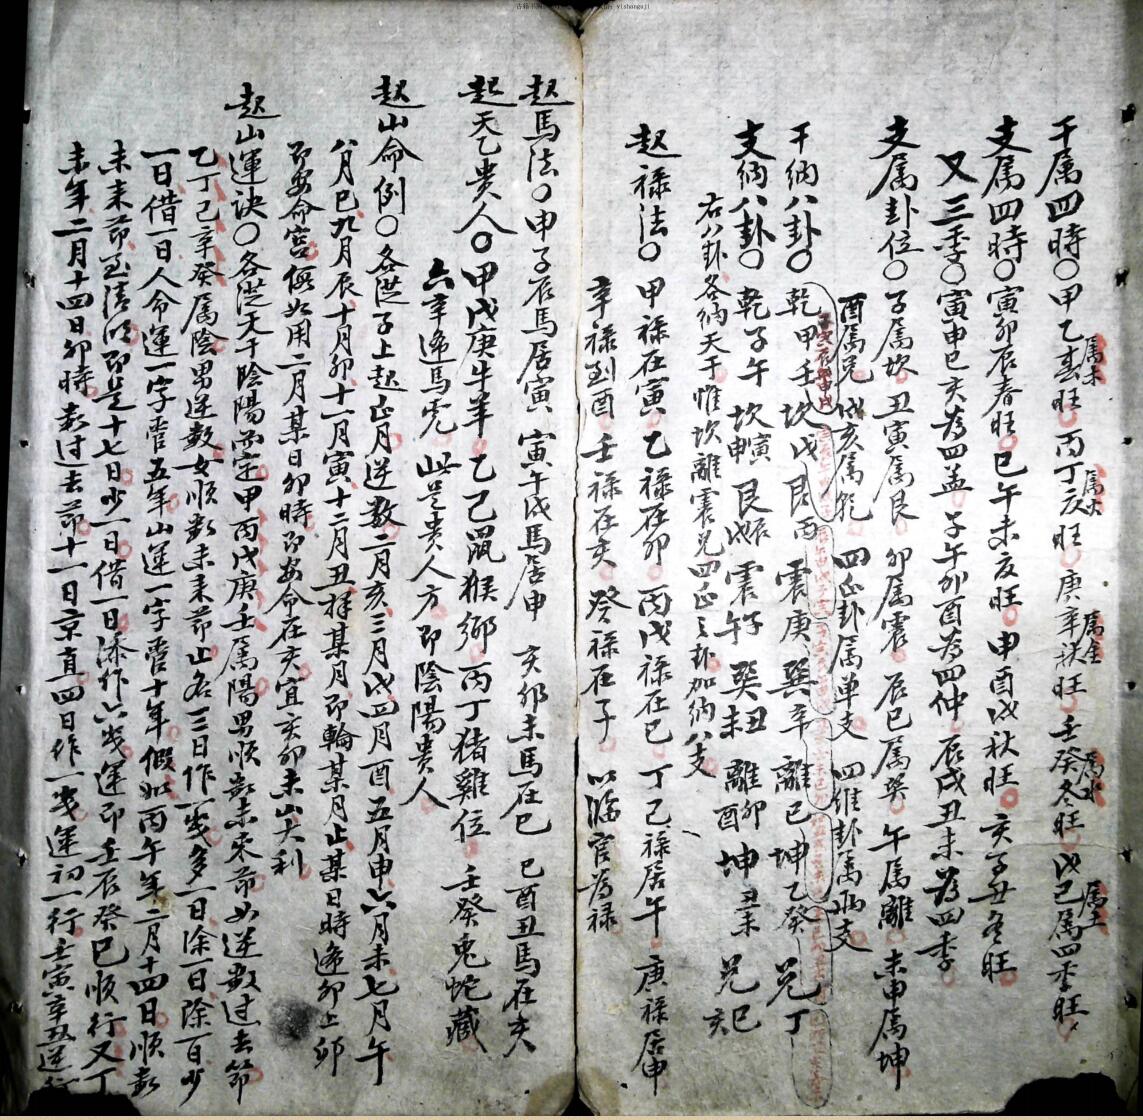 干属四時〇甲乙春旺 丙丁夏旺 庚辛秋旺 壬癸冬旺 戊己属四季旺
属木 属火 属金 属水 属土
支属四時〇寅卯辰春旺 巳午未夏旺 申酉戌秋旺 亥子丑冬旺
又三季〇寅申巳亥為四孟 子午卯酉為四仲 辰戌丑未為四季
支属卦位〇子属坎 丑寅属艮 卯属震 辰巳属巽 午属離 未申属坤
酉属兑 戌亥属乾 四正卦属单支 四維卦属兩支
干納八卦〇乾甲壬 坎戊 艮丙 震庚 巽辛 離己 坤乙癸 兑丁
支納八卦〇乾子午 坎申寅 艮辰戌 震午子 巽未丑 離卯酉 坤丑未 兑巳亥
右八卦各納天干惟坎離震兑四正之卦加納八支
起禄法〇甲禄在寅 乙禄在卯 丙戊禄在巳 丁己禄居午 庚禄居申
辛禄到酉 壬禄在亥 癸禄在子 以臨官為禄
起馬法〇申子辰馬居寅 寅午戌馬居申 亥卯未馬在巳 巳酉丑馬在亥
起天乙貴人〇甲戊庚牛羊 乙己鼠猴鄉 丙丁猪雞位 壬癸兎蛇藏
六辛逢馬虎 此是貴人方 即陰陽貴人
起山命例〇各從子上起正月逆數二月亥三月戌四月酉五月申六月未七月午
八月巳九月辰十月卯十一月寅十二月丑 某月即輪某月止某日時逢卯上卯
即安命宮 假如用二月某日卯時即安命在亥宜亥卯未山大利
起山運訣〇各從天干陰陽而定甲丙戊庚壬属陽男順數未來節女逆數过去節
乙丁己辛癸属陰男逆數女順數未來節止各三日作一歲多一日除一日除百少
一日借一日人命運一字管五年山運一字管十年假如丙午年二月十四日順數
未來節至清明節是十七日少一日借一日添作六歲運即壬辰癸巳順行又丁
未年二月十四日卯時數过去節十一日京直四日作一歲運初一行壬寅辛丑逆行